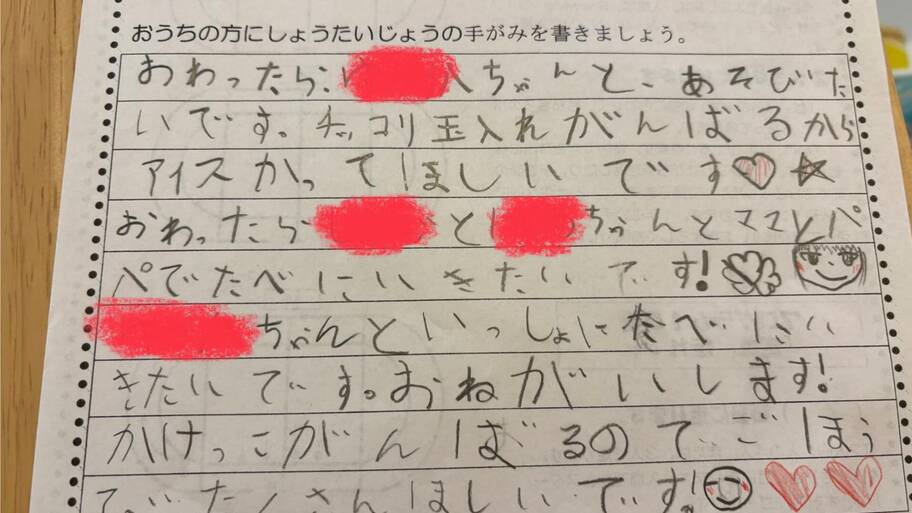 おうちの方にしょうたいじょうの手がみを書きましょう。
おわったら、ちゃんと、あそびた
いです。チッコリ玉入れがんばるから
アイスかってほしいです
おわったらとちゃんとママとパ
パでたべにいきたいです!
ちゃんといっしょに食べにい
きたいです。おねがいします!
かけっこがんばるのでごほう
びたくさんほしいです!